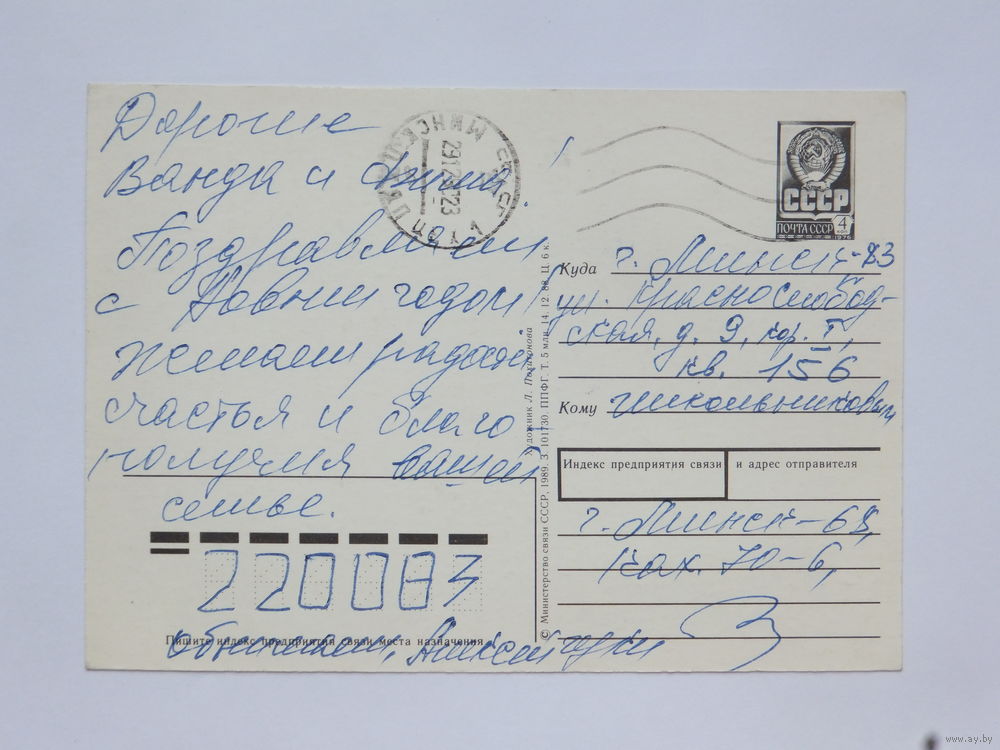 Дорогие
Ванда и
Поздравляем
с Новым годом!
Желаем радости
счастья и благо
получия вашей
семье.
220083
Пишите индекс предприятия связи места назначения
Обнимаем,
МИНСК
291289
СССР
ПОЧТА СССР
4
коп
1976
Куда г. Минск-83
ул. Краснослобод-
ская, д. 9, кор. I,
кв. 156
Кому Школьниковым
Индекс предприятия связи и адрес отправителя
г. Минск-68,
70-6,
© Министерство связи СССР, 1989. З. 101730. ППФГ. Т. 5 млн. 14. 12. 88. Ц. 6 к.
Художник Л.
www.ay.by